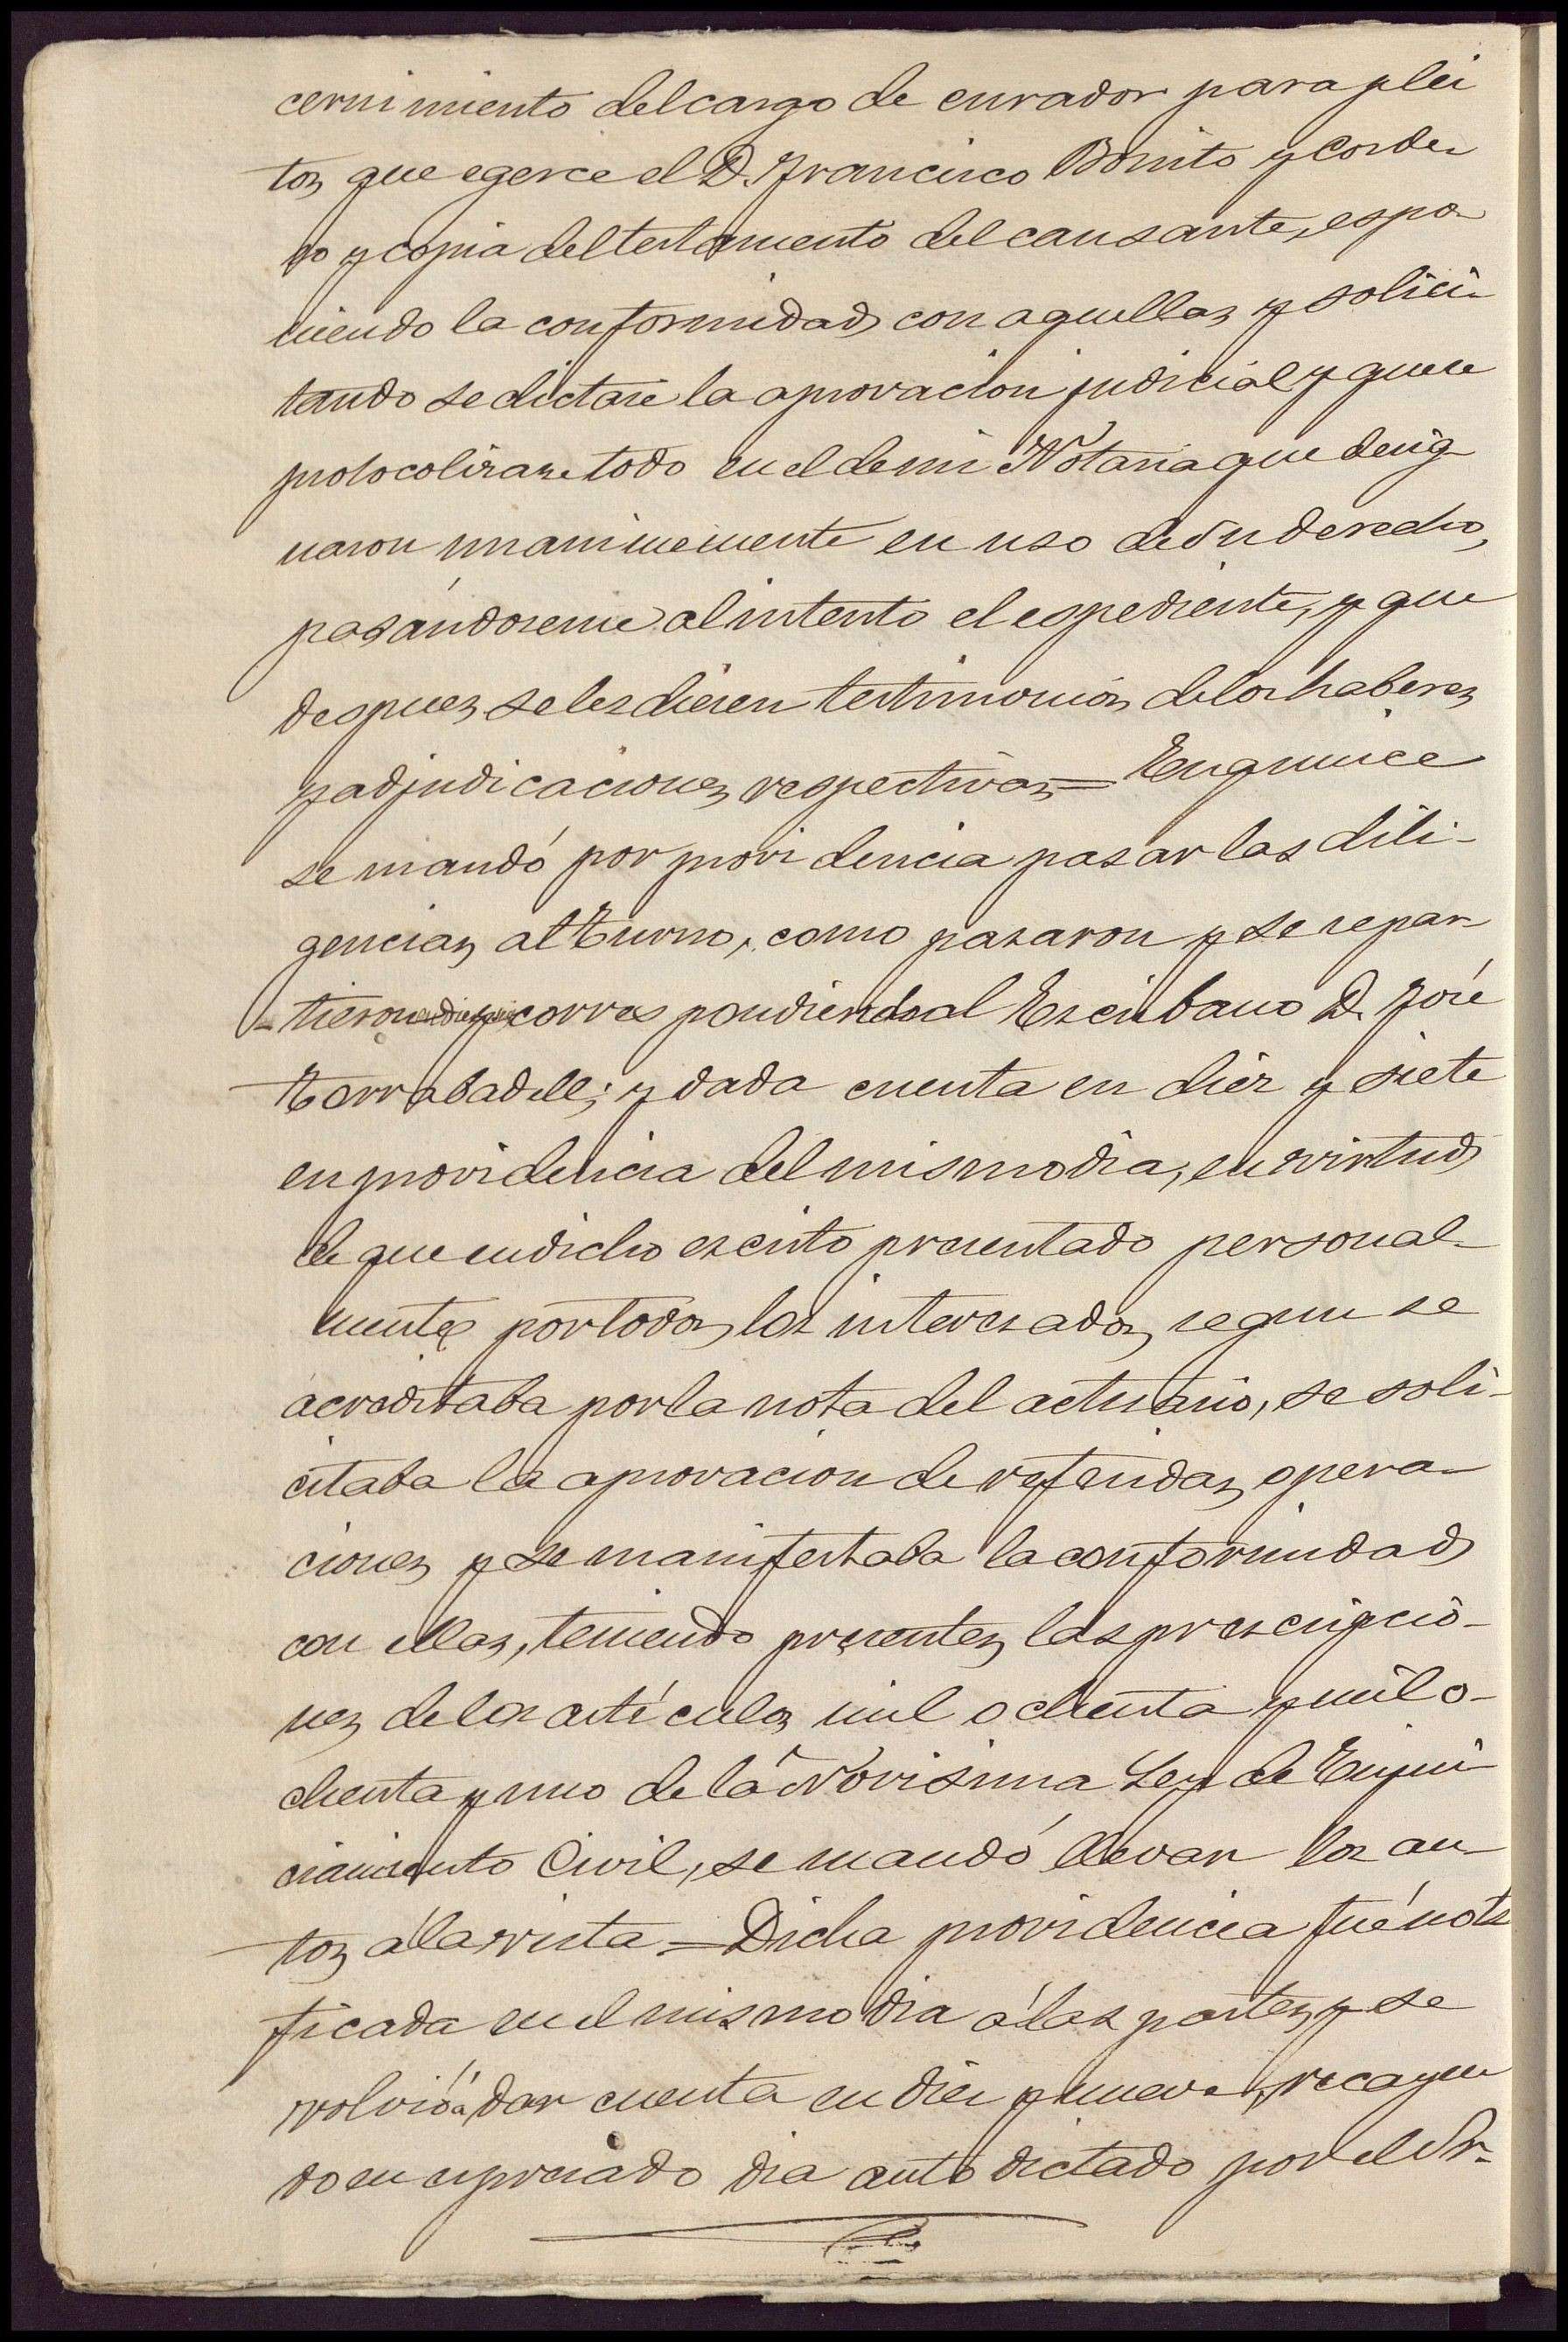 cernimiento del cargo de curador para plei
tos que egerce el D. Francisco Bonito y Corde-
ro y copia del testamento del causante, espo-
niendo la conformidad con aquellas y solici-
tando se dictare la aprovacion judicial y que se
protocolizase todo en el de mi Notaria que desig-
naron unanimemente en uso de su derecho,
pasándoseme al intento el espediente, y que
despues se les diesen testimonios de los haberes
y adjudicaciones respectivas = En quince
se mandó por providencia pasar las dili-
gencias al turno, como pasaron y se repar-
tieron correspondiendo al Escribano D. José
Torrabadell; y dada cuenta en diez y siete
en providencia del mismo dia, en virtud
de que en dicho escrito presentado personal-
mente por todos los interesados, segun se
acreditaba por la nota del actuario, se soli-
citaba la aprovacion de referidas opera-
ciones y se manifestaba la conformidad
con ellas, teniendo presentes las prescripcio-
nes de los artículos mil ochenta y mil o-
chenta y uno de la Novisima Ley de Enjui-
ciamiento Civil, se mandó llevar los au-
tos á la vista = Dicha providencia fué noti
ficada en el mismo dia á las partes y se
volvió á dar cuenta en diez y nueve, recayen
do en espresado dia auto dictado por el Sr.